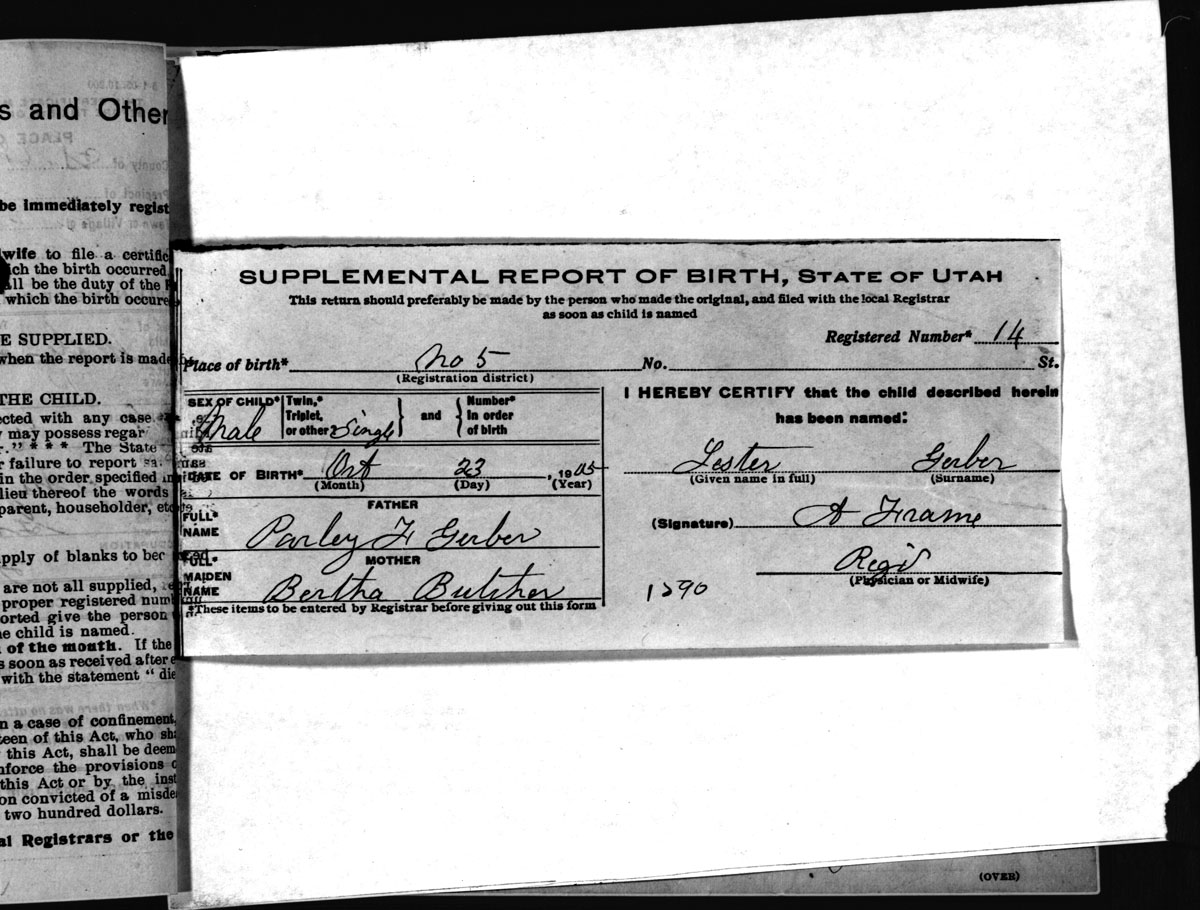 s and Other
be immediately regist
wife to file a certific
ich the birth occurred
all be the duty of the
which the birth occure
E SUPPLIED.
when the report is made
THE CHILD.
ected with any case
may possess regar
r." * * * The State
r failure to report
in the order specified in
lieu thereof the words
parent, householder, etc
pply of blanks to be
are not all supplied,
proper registered num
orted give the person
e child is named.
of the month. If the
s soon as received after
with the statement "die
n a case of confinement,
teen of this Act, who sha
this Act, shall be deem
nforce the provisions o
this Act or by the inst
on convicted of a misde
two hundred dollars.
al Registrars or the
SUPPLEMENTAL REPORT OF BIRTH, STATE OF UTAH
This return should preferably be made by the person who made the original, and filed with the local Registrar
as soon as child is named
Registered Number* 14
Place of birth* No 5 No. St.
(Registration district)
SEX OF CHILD* Male
Twin,*
Triplet,
or other? Single
and
Number*
In order
of birth
DATE OF BIRTH* Oct 23, 1905
(Month) (Day) (Year)
FATHER
FULL*
NAME Parley F Gerber
MOTHER
FULL*
MAIDEN
NAME Bertha Butcher
*These items to be entered by Registrar before giving out this form
I HEREBY CERTIFY that the child described herein
has been named:
Lester Gerber
(Given name in full) (Surname)
(Signature) A Frame
Regr
(Physician or Midwife)
1290
(OVER)